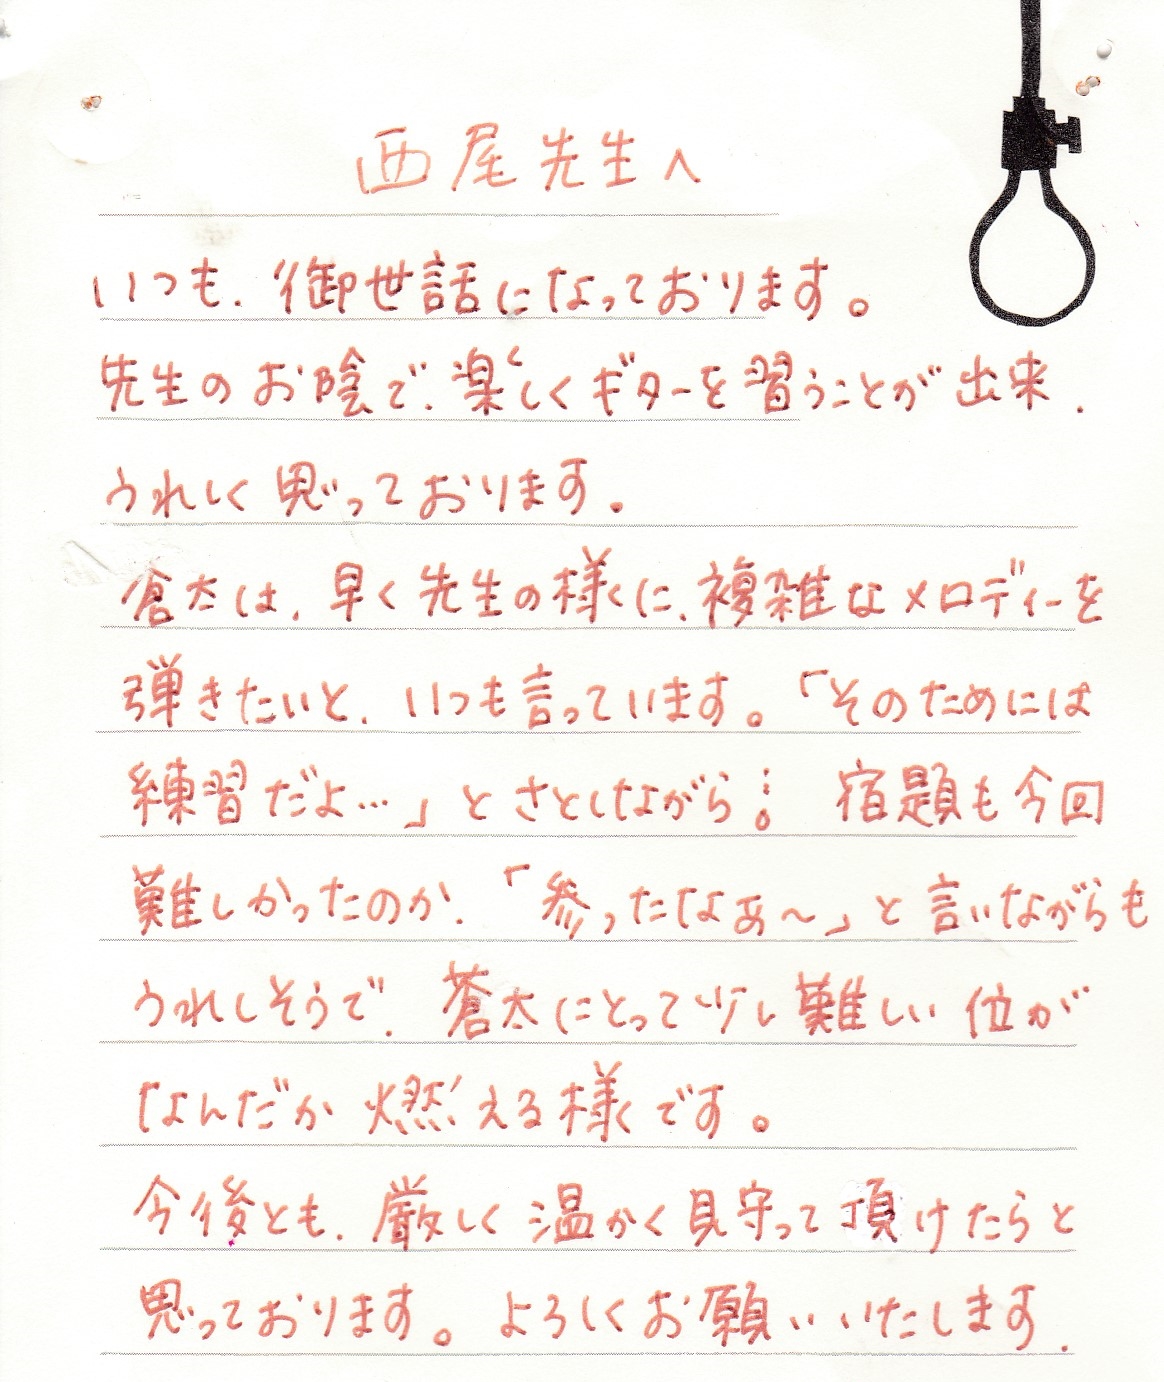 西尾先生へ
いつも、御世話になっております。
先生のお陰で、楽しくギターを習うことが出来、
うれしく思っております。
蒼太は、早く先生の様に、複雑なメロディーを
弾きたいと、いつも言っています。「そのためには
練習だよ…」とさとしながら…。 宿題も今回
難しかったのか、「参ったなあ〜」と言いながらも
うれしそうで、蒼太にとって少し難しい位が
なんだか燃える様です。
今後とも、厳しく温かく見守って頂けたらと
思っております。よろしくお願いいたします.